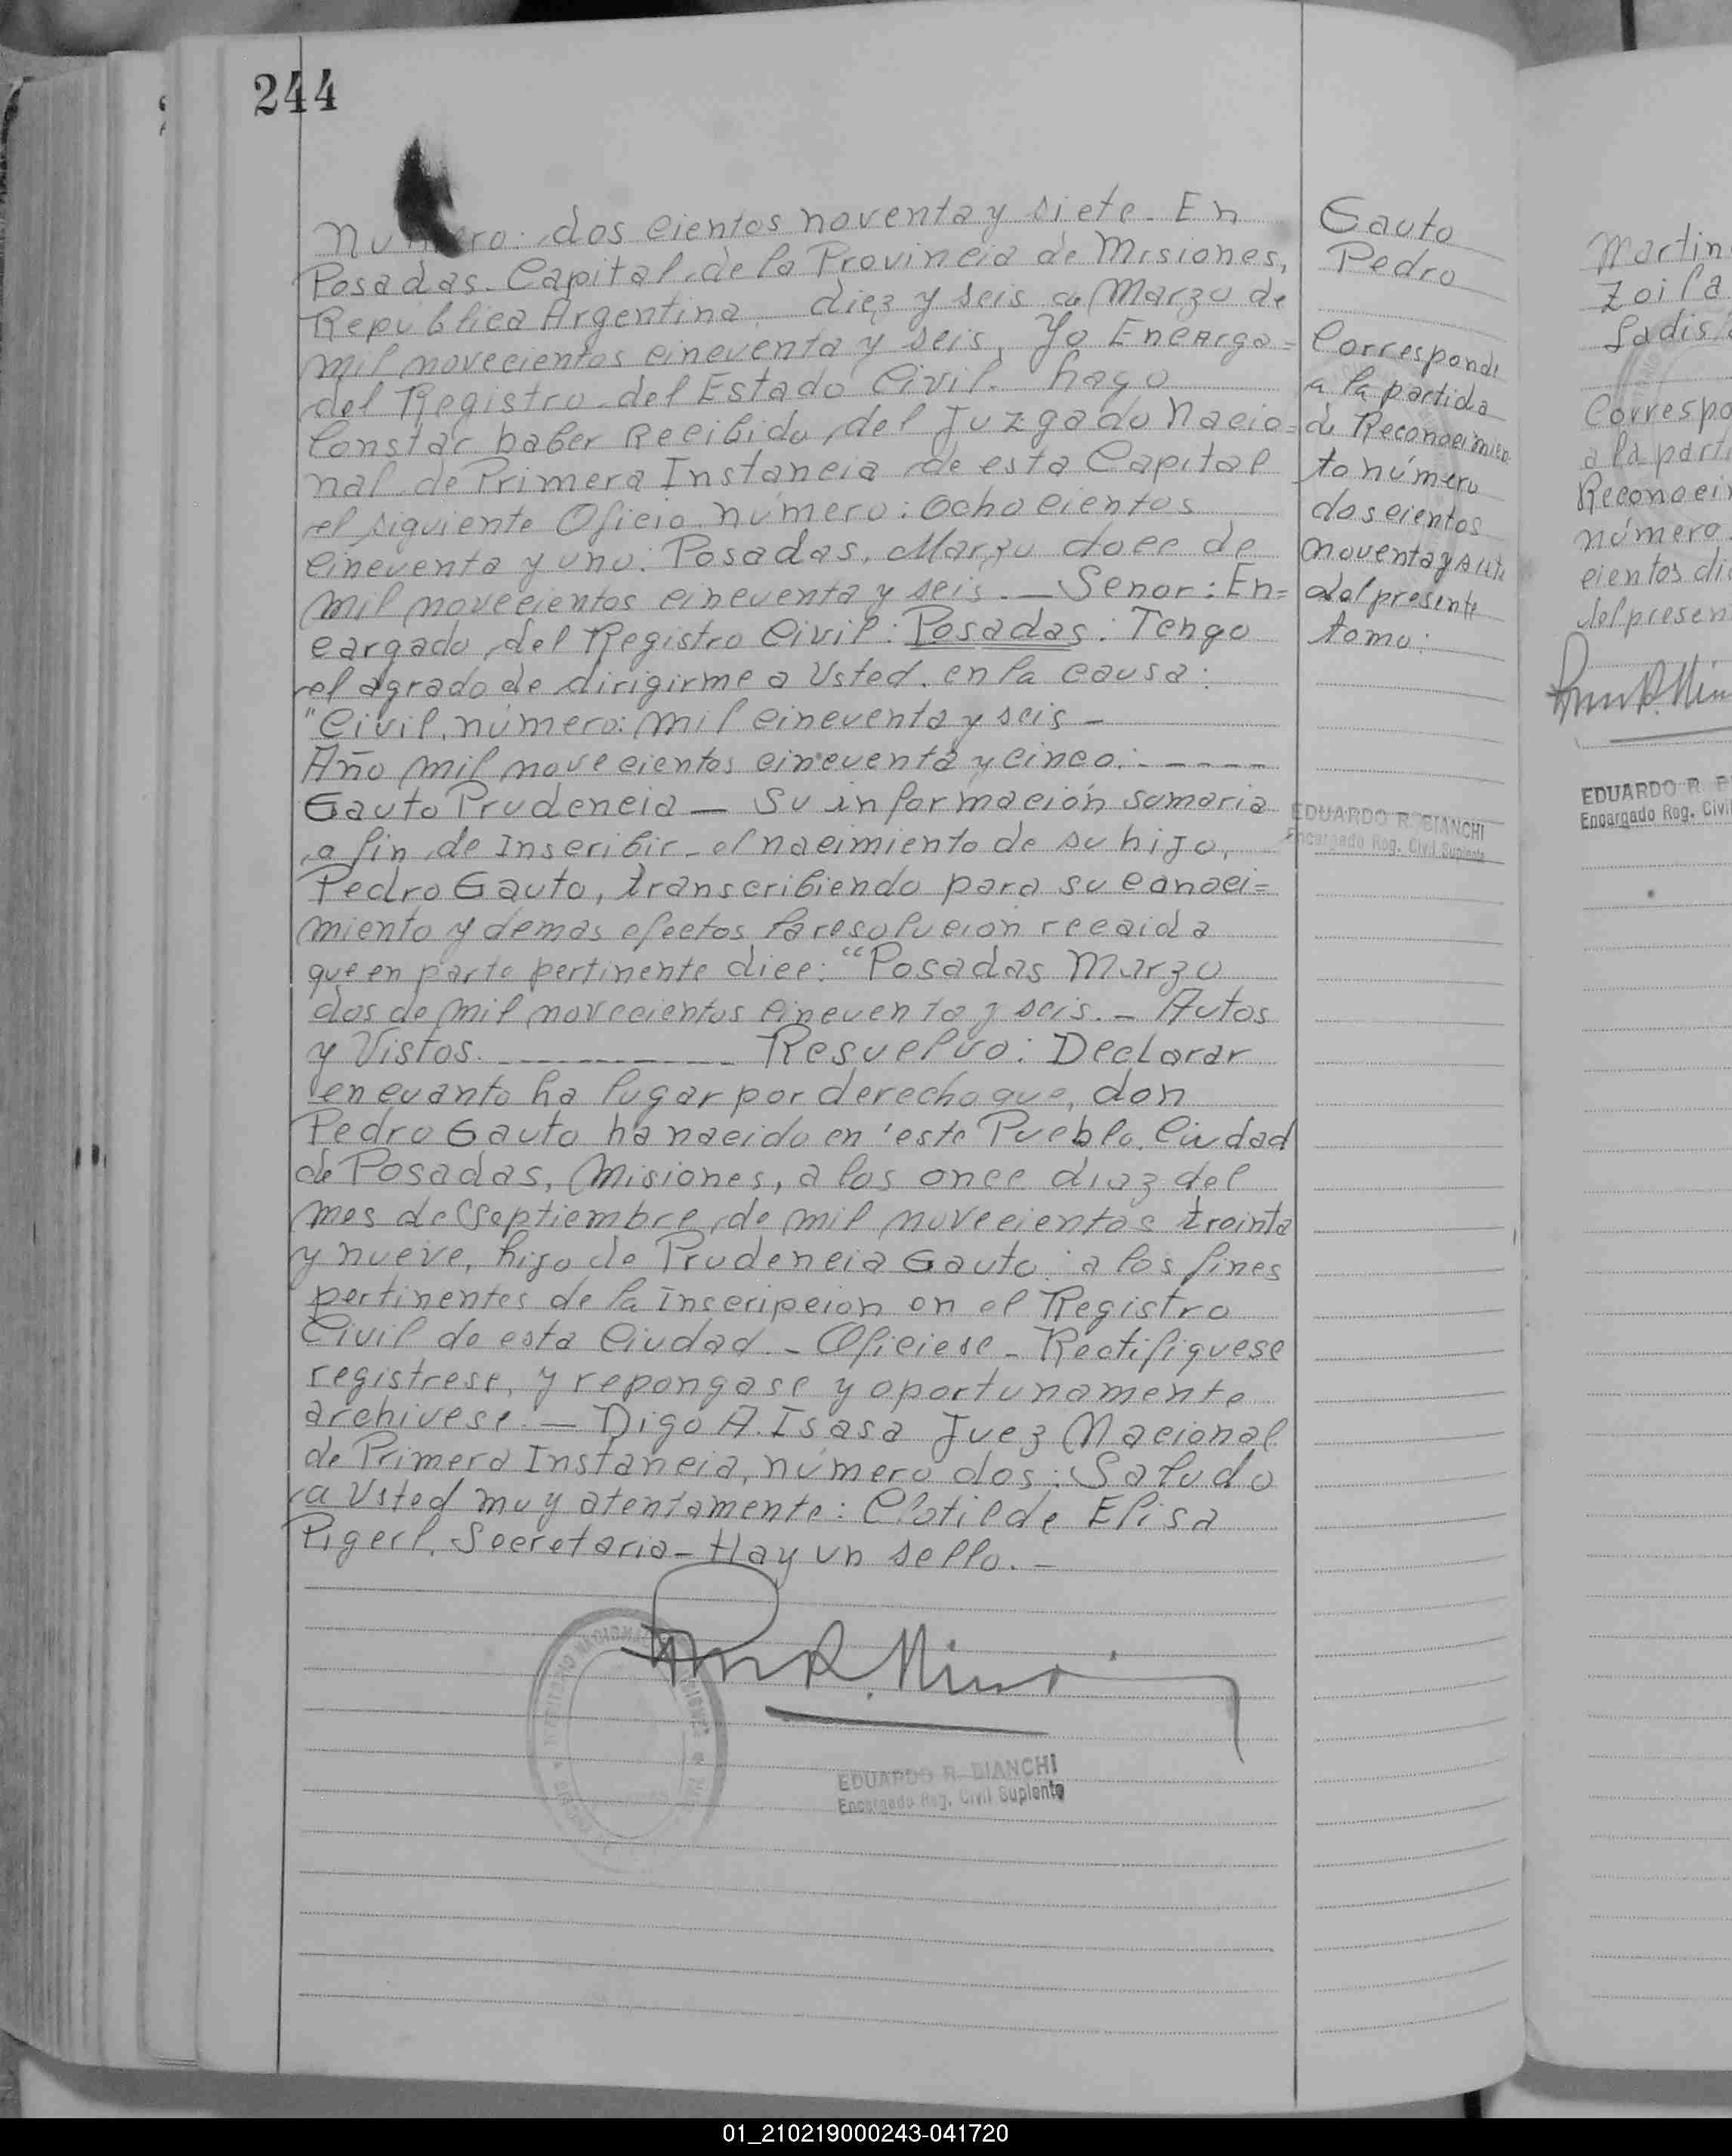 244
Numero: dos cientos noventa y siete. En
Posadas. Capital de la Provincia de Misiones,
Republica Argentina, diez y seis de Marzo de
mil novecientos cincuenta y seis, Yo Encarga=
del Registro del Estado Civil. hago
Constar haber Recibido, del Juzgado Nacio=
nal de Primera Instancia de esta Capital
el siguiente Oficio número: ochocientos
cincuenta y uno: Posadas, Marzo doce de
mil novecientos cincuenta y seis. — Senor: En=
cargado del Registro Civil: Posadas: Tengo
el agrado de dirigirme a Usted. en la causa:
"Civil, número: mil cincuenta y seis —
Año mil novecientos cincuenta y cinco: - - - - -
Gauto Prudencia — Su información sumaria
a fin de Inscribir el nacimiento de su hijo,
Pedro Gauto, transcribiendo para su conoci=
miento y demas efectos la resolucion recaida
que en parte pertinente dice: "Posadas Marzo
dos de mil novecientos cincuenta y seis. - Autos
y Vistos. - - - - - - - - Resuelvo: Declarar
en cuanto ha lugar por derecho que, don
Pedro Gauto ha nacido en este Pueblo, Ciudad
de Posadas, Misiones, a los once diaz del
mes de Septiembre, de mil novecientos treinta
y nueve, hijo de Prudencia Gauto: a los fines
pertinentes de la Inscripcion en el Registro
Civil de esta Ciudad. - Oficiese - Rectifiquese
registrese, y repongase y oportunamente
archivese. — Digo A. Isasa Juez Nacional
de Primera Instancia, número dos: Saludo
a Usted muy atentamente: Clotilde Elisa
Pigerl, Secretaria - Hay un sello. -
EDUARDO R. BIANCHI
Encargado Reg. Civil Suplente
Gauto
Pedro
Corresponde
a la partida
de Reconocimien
to número
doscientos
noventa y siete
del presente
tomo:
EDUARDO R. BIANCHI
Encargado Reg. Civil Suplente
Martin
Zoila
Ladis
Correspo
a la parti
Reconoci
número
cientos di
del presen
EDUARDO R. B
Encargado Reg. Civil
01_210219000243-041720